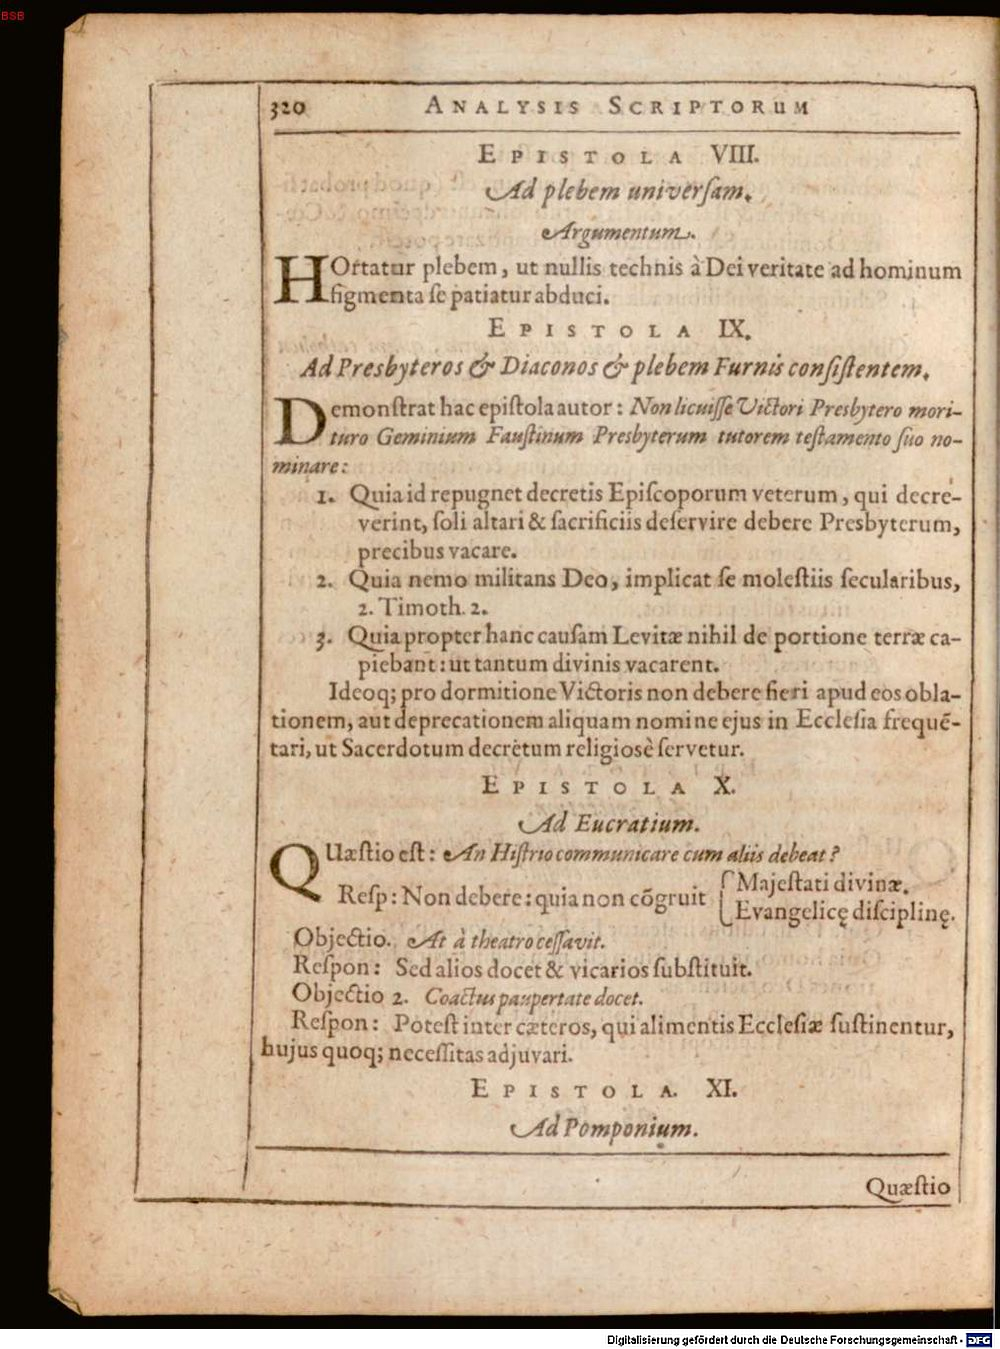 BSB
320 ANALYSIS SCRIPTORUM
EPISTOLA VIII.
Ad plebem univerſam.
Argumentum.
HOrtatur plebem, ut nullis technis à Dei veritate ad hominum
figmenta ſe patiatur abduci.
EPISTOLA IX.
Ad Presbyteros & Diaconos & plebem Furnis conſiſtentem.
Demonſtrat hac epiſtola autor: Non licuiſſe Victori Presbytero mori-
turo Geminium Fauſtinum Presbyterum tutorem teſtamento ſuo no-
minare:
1. Quia id repugnet decretis Epiſcoporum veterum, qui decre-
verint, ſoli altari & ſacrificiis deſervire debere Presbyterum,
precibus vacare.
2. Quia nemo militans Deo, implicat ſe moleſtiis ſecularibus,
2. Timoth. 2.
3. Quia propter hanc cauſam Levitæ nihil de portione terræ ca-
piebant: ut tantum divinis vacarent.
Ideoq; pro dormitione Victoris non debere fieri apud eos obla-
tionem, aut deprecationem aliquam nomine ejus in Eccleſia frequẽ-
tari, ut Sacerdotum decretum religiosè ſervetur.
EPISTOLA X.
Ad Eucratium.
QUæſtio eſt: An Hiſtrio communicare cum aliis debeat?
Reſp: Non debere: quia non cõgruit { Majeſtati divinæ.
Evangelicę diſciplinę.
Objectio. At à theatro ceſſavit.
Reſpon: Sed alios docet & vicarios ſubſtituit.
Objectio 2. Coactus paupertate docet.
Reſpon: Poteſt inter cæteros, qui alimentis Eccleſiæ ſuſtinentur,
hujus quoq; neceſſitas adjuvari.
EPISTOLA. XI.
Ad Pomponium.
Quæſtio
Digitalisierung gefördert durch die Deutsche Forschungsgemeinschaft - DFG